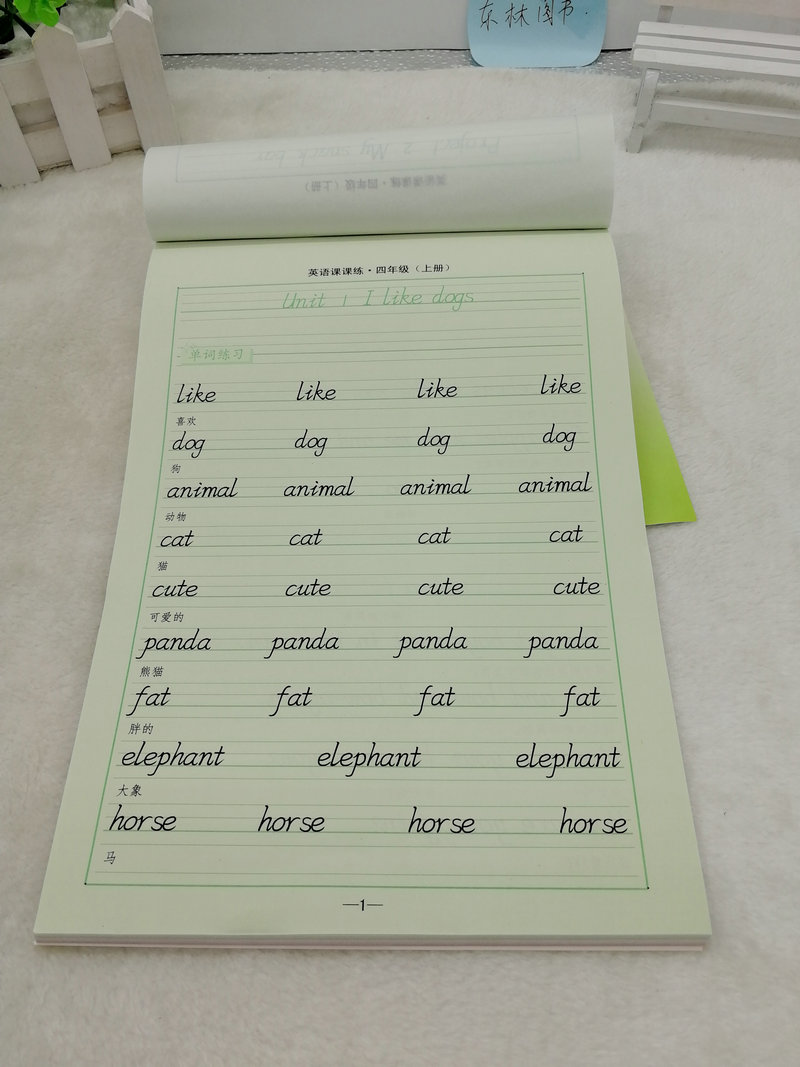 东林图书.
Project 2 My snack bar
英语课课练·四年级（上册）
英语课课练·四年级（上册）
Unit 1 I like dogs
单词练习
like like like like
喜欢
dog dog dog dog
狗
animal animal animal animal
动物
cat cat cat cat
猫
cute cute cute cute
可爱的
panda panda panda panda
熊猫
fat fat fat fat
胖的
elephant elephant elephant
大象
horse horse horse horse
马
—1—